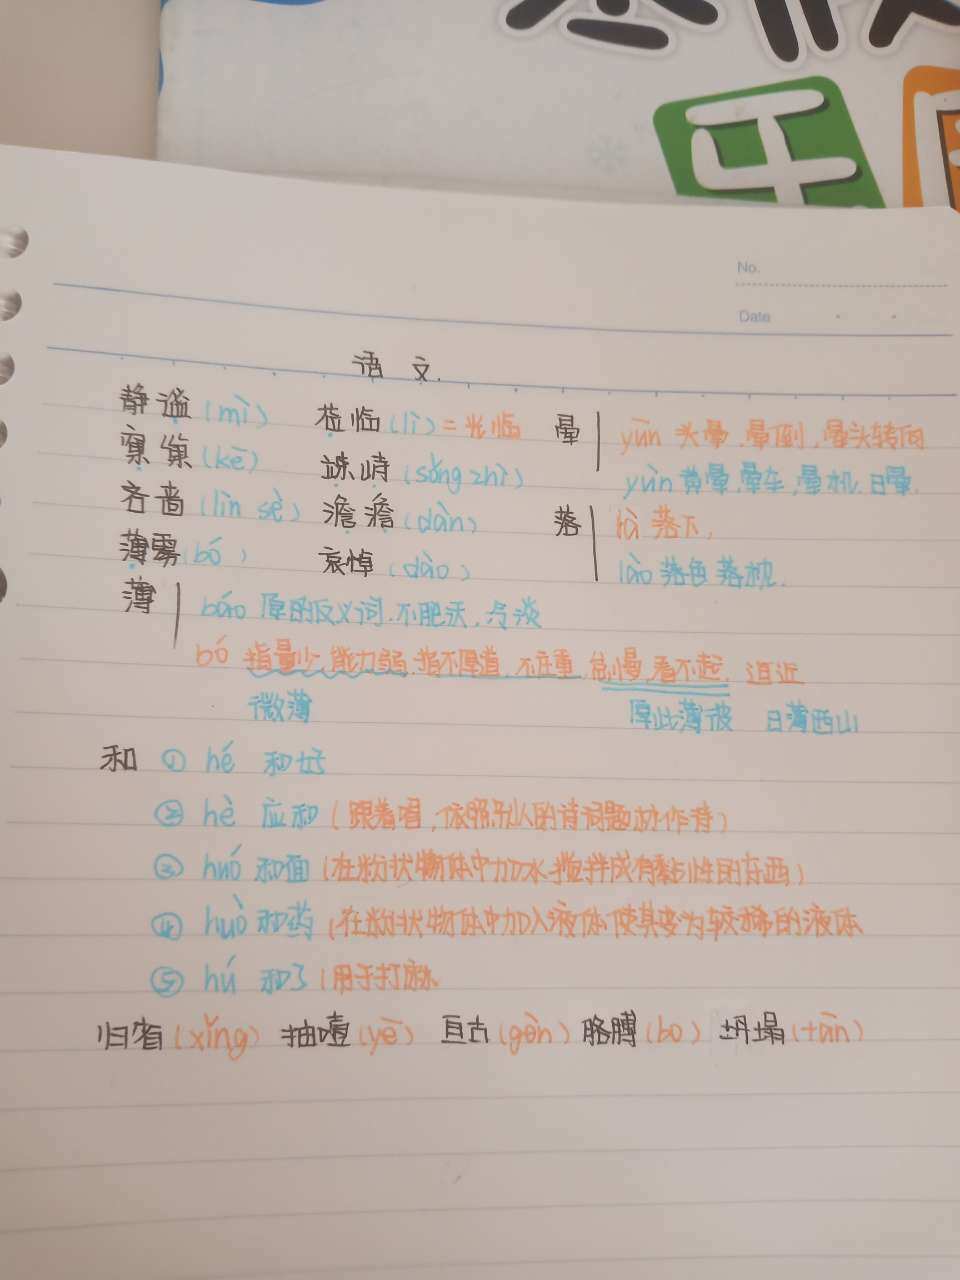 乐
No.
Date
语 文.
静谧(mì) 莅临(lì)=光临 晕 yūn 头晕.晕倒,晕头转向
窠(kē) 竦峙(sǒng zhì) yùn 黄晕,晕车,晕机.日晕.
吝啬(lìn sè) 澹澹(dàn) 落 là 落下,
薄雾(bó) 哀悼(dào) lào 落色 落枕.
薄 báo 厚的反义词.不肥沃,冷淡
bó 指量少,能力弱.指不厚道,不庄重,怠慢,看不起. 迫近
微薄 厚此薄彼 日薄西山
和 ① hé 和好
② hè 应和(跟着唱,依照别人的诗词题材作诗)
③ huó 和面(在粉状物体中加水搅拌成有黏性的东西)
④ huò 和药(在粉状物体中加入液体使其变为较稀的液体
⑤ hú 和了(用于打麻
归省(xǐng) 抽噎(yē) 亘古(gèn) 胳膊(bo) 坍塌(tān)